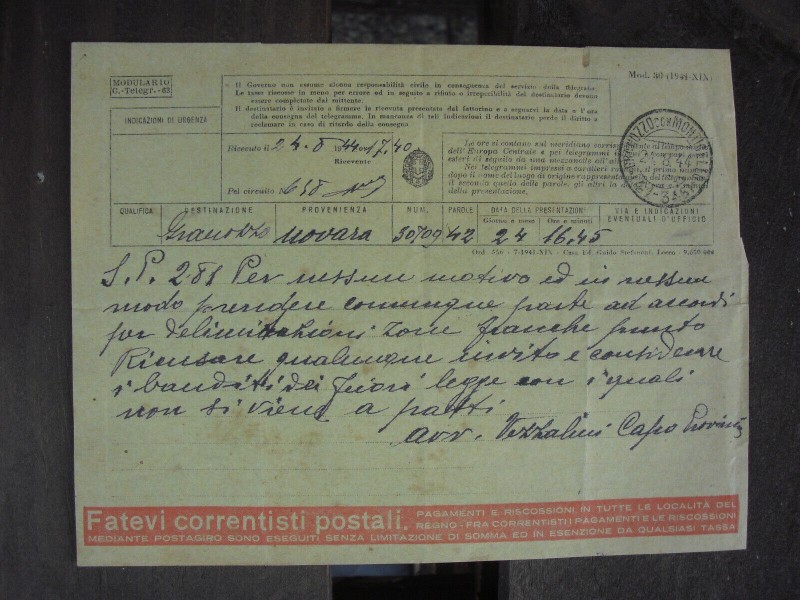 MODULARIO
C.-Telegr.-63
Mod. 30 (1941-XIX)
Il Governo non assume alcuna responsabilità civile in conseguenza del servizio della telegrafia.
Le tasse riscosse in meno per errore ed in seguito a rifiuto o irreperibilità del destinatario devono
essere completate dal mittente.
Il destinatario è invitato a firmare la ricevuta presentata dal fattorino e a segnarvi la data e l'ora
della consegna del telegramma. In mancanza di tali indicazioni il destinatario perde il diritto a
reclamare in caso di ritardo della consegna
INDICAZIONI DI URGENZA
Ricevuto il 24-8 1944 ore 17.40
Ricevente
Pel circuito N. 658
Le ore si contano sul meridiano corrispondente al tempo medio
dell'Europa Centrale
Nei telegrammi impressi a caratteri romani, il primo numero
dopo il nome del luogo di origine rappresenta quello del telegramma,
il secondo quello delle parole, gli altri la data
della presentazione.
24.8.44
QUALIFICA DESTINAZIONE PROVENIENZA NUM. PAROLE DATA DELLA PRESENTAZIONE VIA E INDICAZIONI
Giorno e mese Ore e minuti EVENTUALI D'UFFICIO
Granozzo Novara 30709 42 24 16.45
Ord. 556 - 7-1941-XIX - Casa Ed. Guido Stefanoni, Lecco
S.P. 288 Per nessun motivo ed in nessun
modo prendere comunque parte ad accordi
per delimitazioni zone franche punto
Ricusare qualunque invito e considerare
i banditi dei fuori legge con i quali
non si viene a patti
avv. Vezzalini Capo Provincia
Fatevi correntisti postali. PAGAMENTI E RISCOSSIONI IN TUTTE LE LOCALITÀ DEL
REGNO - FRA CORRENTISTI I PAGAMENTI E LE RISCOSSIONI
MEDIANTE POSTAGIRO SONO ESEGUITI SENZA LIMITAZIONE DI SOMMA ED IN ESENZIONE DA QUALSIASI TASSA